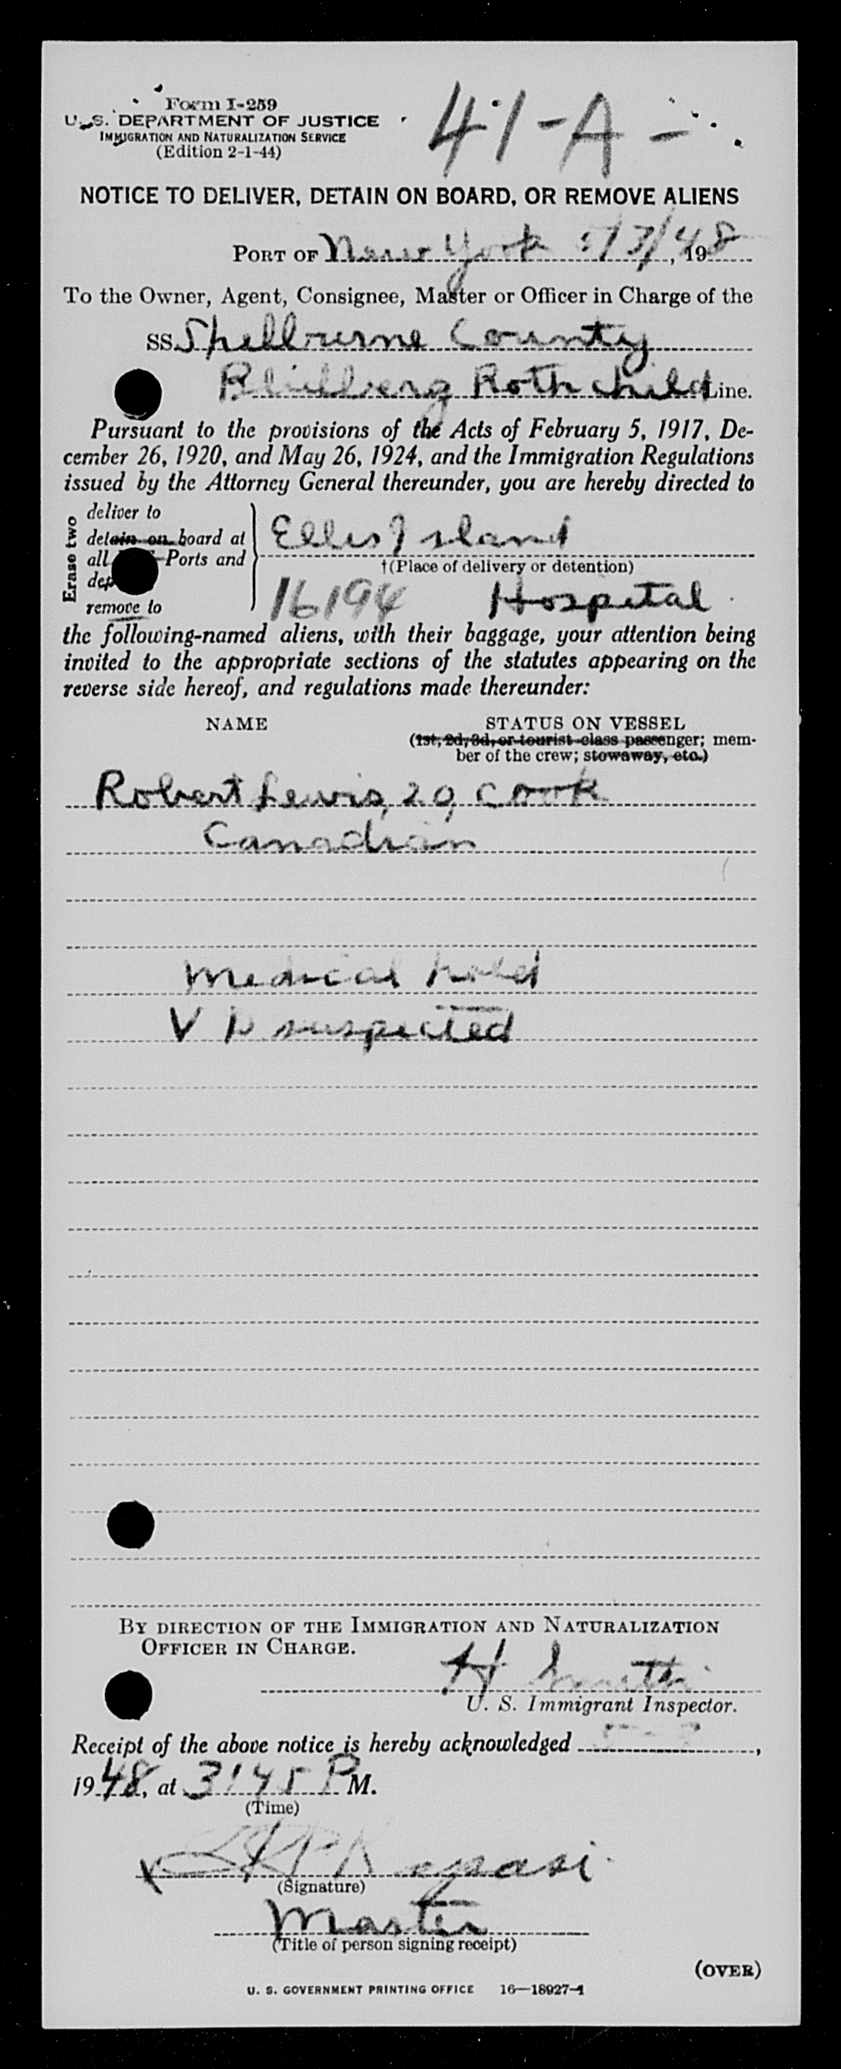 Form I-259
U. S. DEPARTMENT OF JUSTICE
IMMIGRATION AND NATURALIZATION SERVICE
(Edition 2-1-44)
41-A-
NOTICE TO DELIVER, DETAIN ON BOARD, OR REMOVE ALIENS
PORT OF New York 5/3/48, 1948
To the Owner, Agent, Consignee, Master or Officer in Charge of the
SS. Shelburne County
Rothchild Line.
Pursuant to the provisions of the Acts of February 5, 1917, De-
cember 26, 1920, and May 26, 1924, and the Immigration Regulations
issued by the Attorney General thereunder, you are hereby directed to
Erase two
deliver to
detain on board at
all Ports and
remove to
Ellis Island
†(Place of delivery or detention)
16194 Hospital
the following-named aliens, with their baggage, your attention being
invited to the appropriate sections of the statutes appearing on the
reverse side hereof, and regulations made thereunder:
NAME STATUS ON VESSEL
(1st, 2d, 3d, or tourist class passenger; mem-
ber of the crew; stowaway, etc.)
Robert Lewis, 29, Cook
Canadian
Medical hold
V D suspected
BY DIRECTION OF THE IMMIGRATION AND NATURALIZATION
OFFICER IN CHARGE.
H Smith
U. S. Immigrant Inspector.
Receipt of the above notice is hereby acknowledged
1948, at 3:45 PM.
(Time)
(Signature)
Master
(Title of person signing receipt)
(OVER)
U. S. GOVERNMENT PRINTING OFFICE 16—18927-1